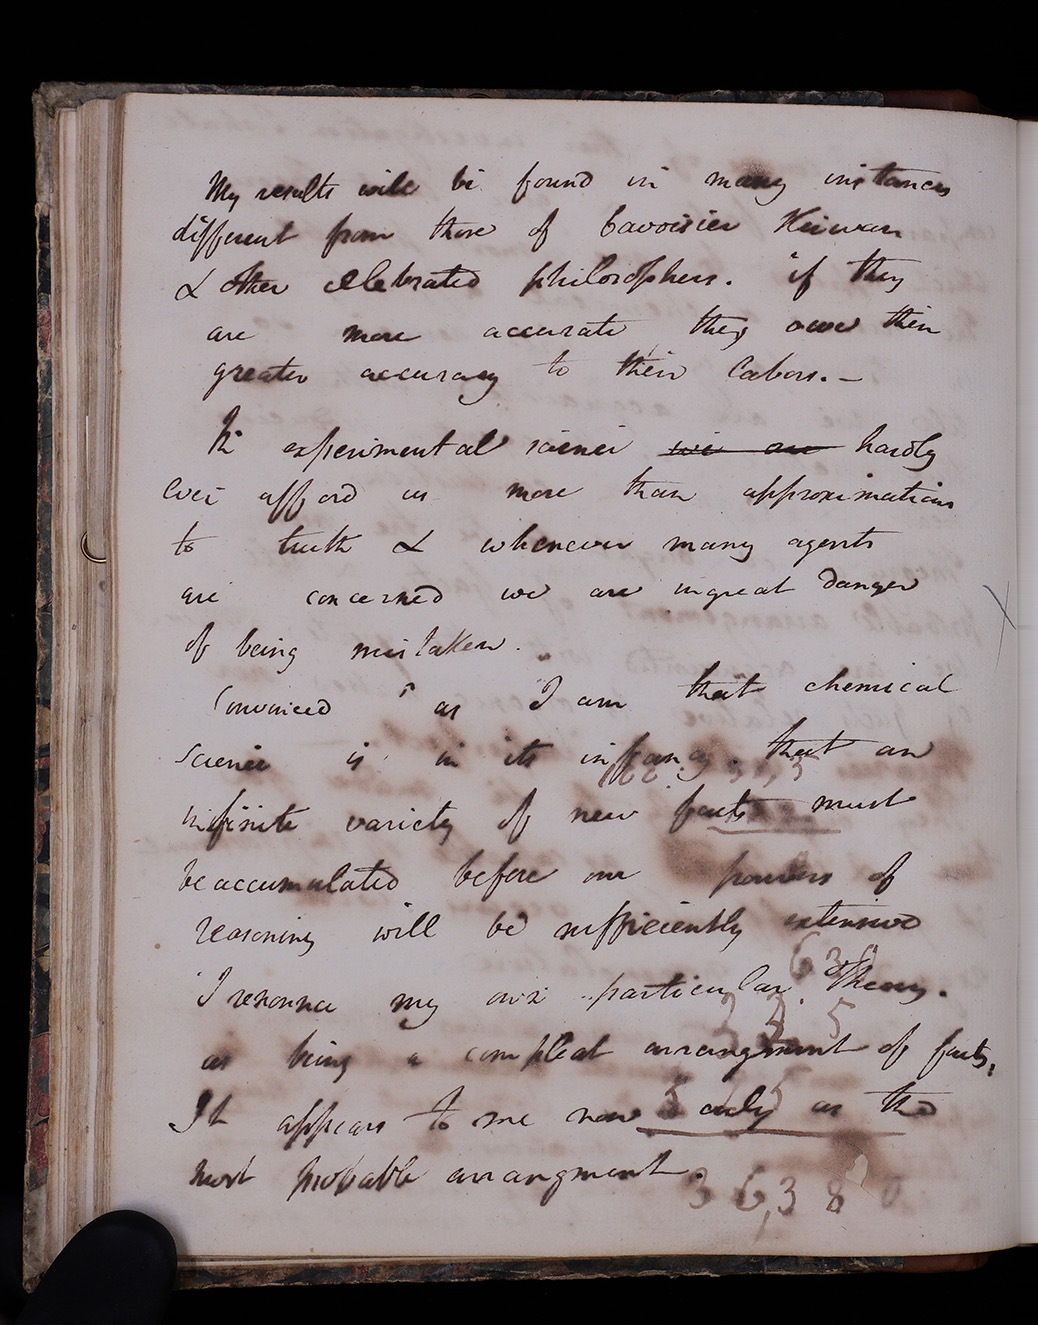 My results will be found in many instances
different from those of Lavoisier Kirwan
& other celebrated philosophers. if they
are more accurate they owe their
greater accuracy to their labors. –
In experimental science <s>we are</s> hardly
ever afford us more than approximations
to truth & whenever many agents
are concerned we are in great danger
of being mistaken.
Convinced as I am that chemical
science is in its infancy. that an
infinite variety of new facts must
be accumulated before our powers of
reasoning will be sufficiently extensive
I renounce my own particular theory.
as being a compleat arrangment of facts,
It appears to me now only as the
most probable arrangment.
36,380